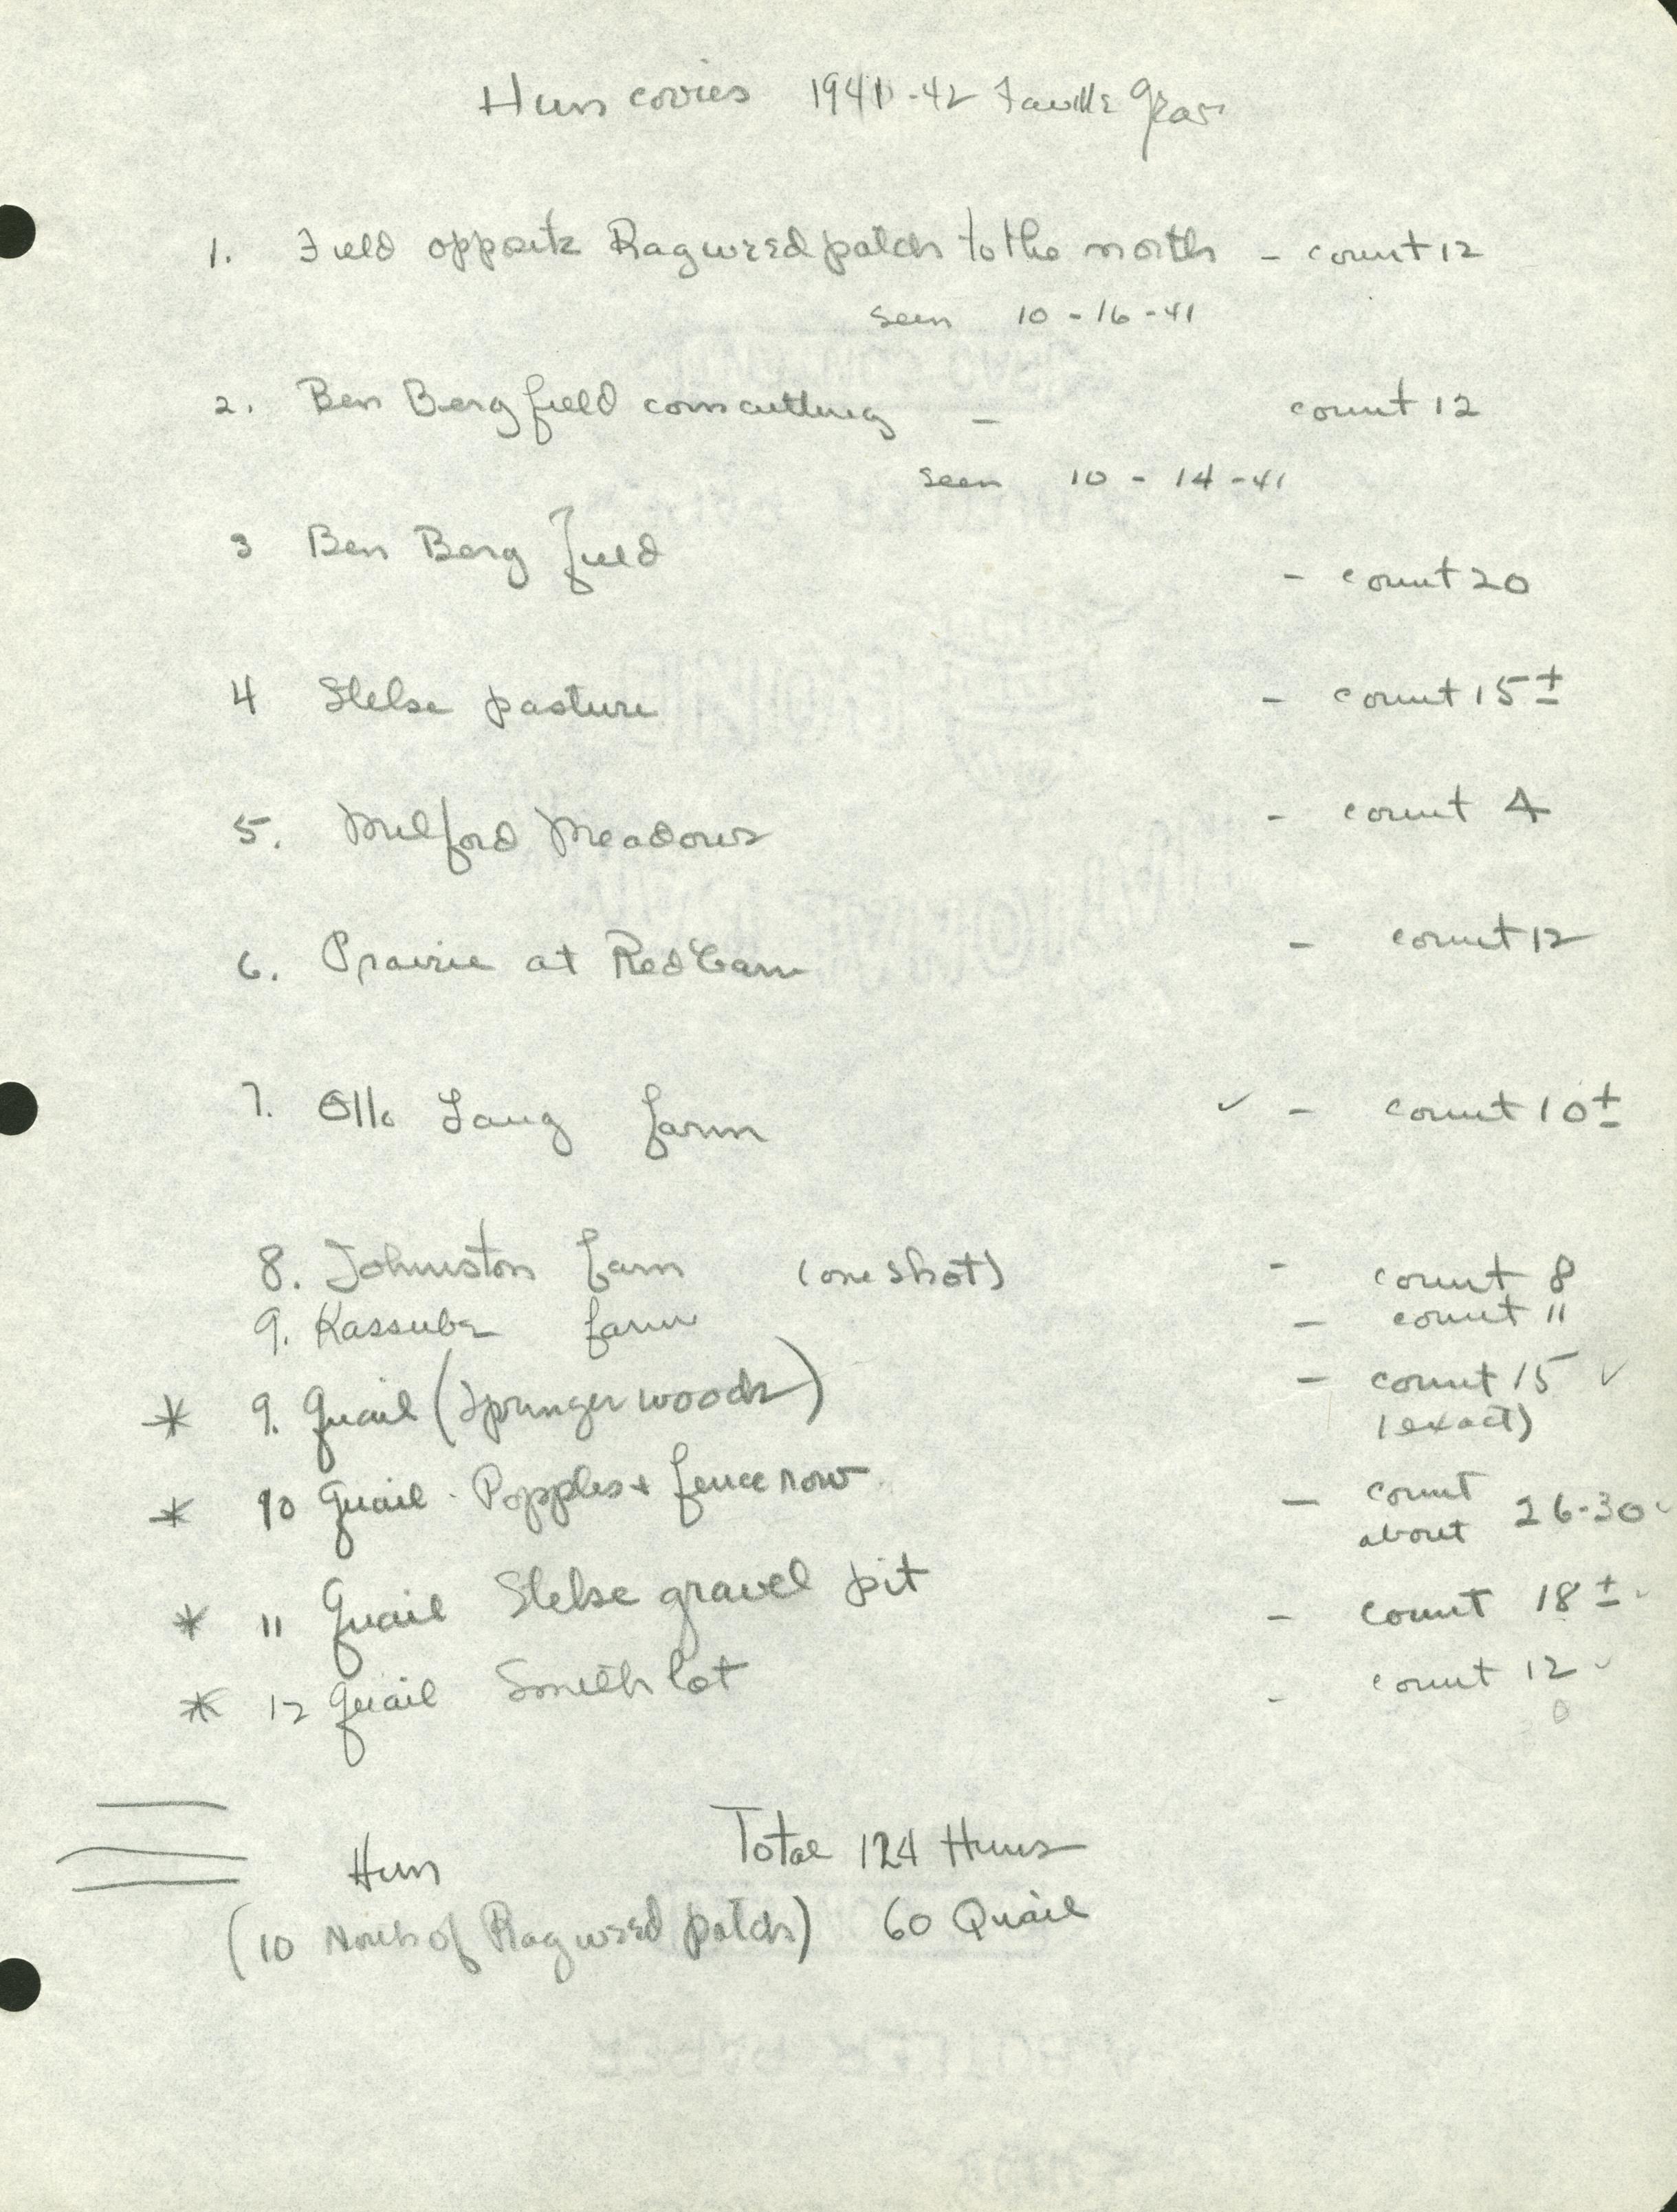 Hun covies 1941-42 Faville Grov
1. Field opposite Ragweed patch to the north - count 12
seen 10-16-41
2. Ben Berg field corn cutting - count 12
seen 10-14-41
3 Ben Berg field - count 20
4 Stelse pasture - count 15±
5. Milford Meadows - count 4
6. Prairie at Red barn - count 12
7. Otto Lang farm ✓ - count 10±
8. Johnston farm (one shot) - count 8
9. Kassube farm - count 11
* 9. Quail (Springer woods) - count 15 ✓
(exact)
* 10 Quail - Popples + fence row - count
about 26-30 ✓
* 11 Quail Stelse gravel pit - count 18±
* 12 Quail Smith lot - count 12 ✓
Hun Total 124 Huns
(10 North of Ragweed patch) 60 Quail